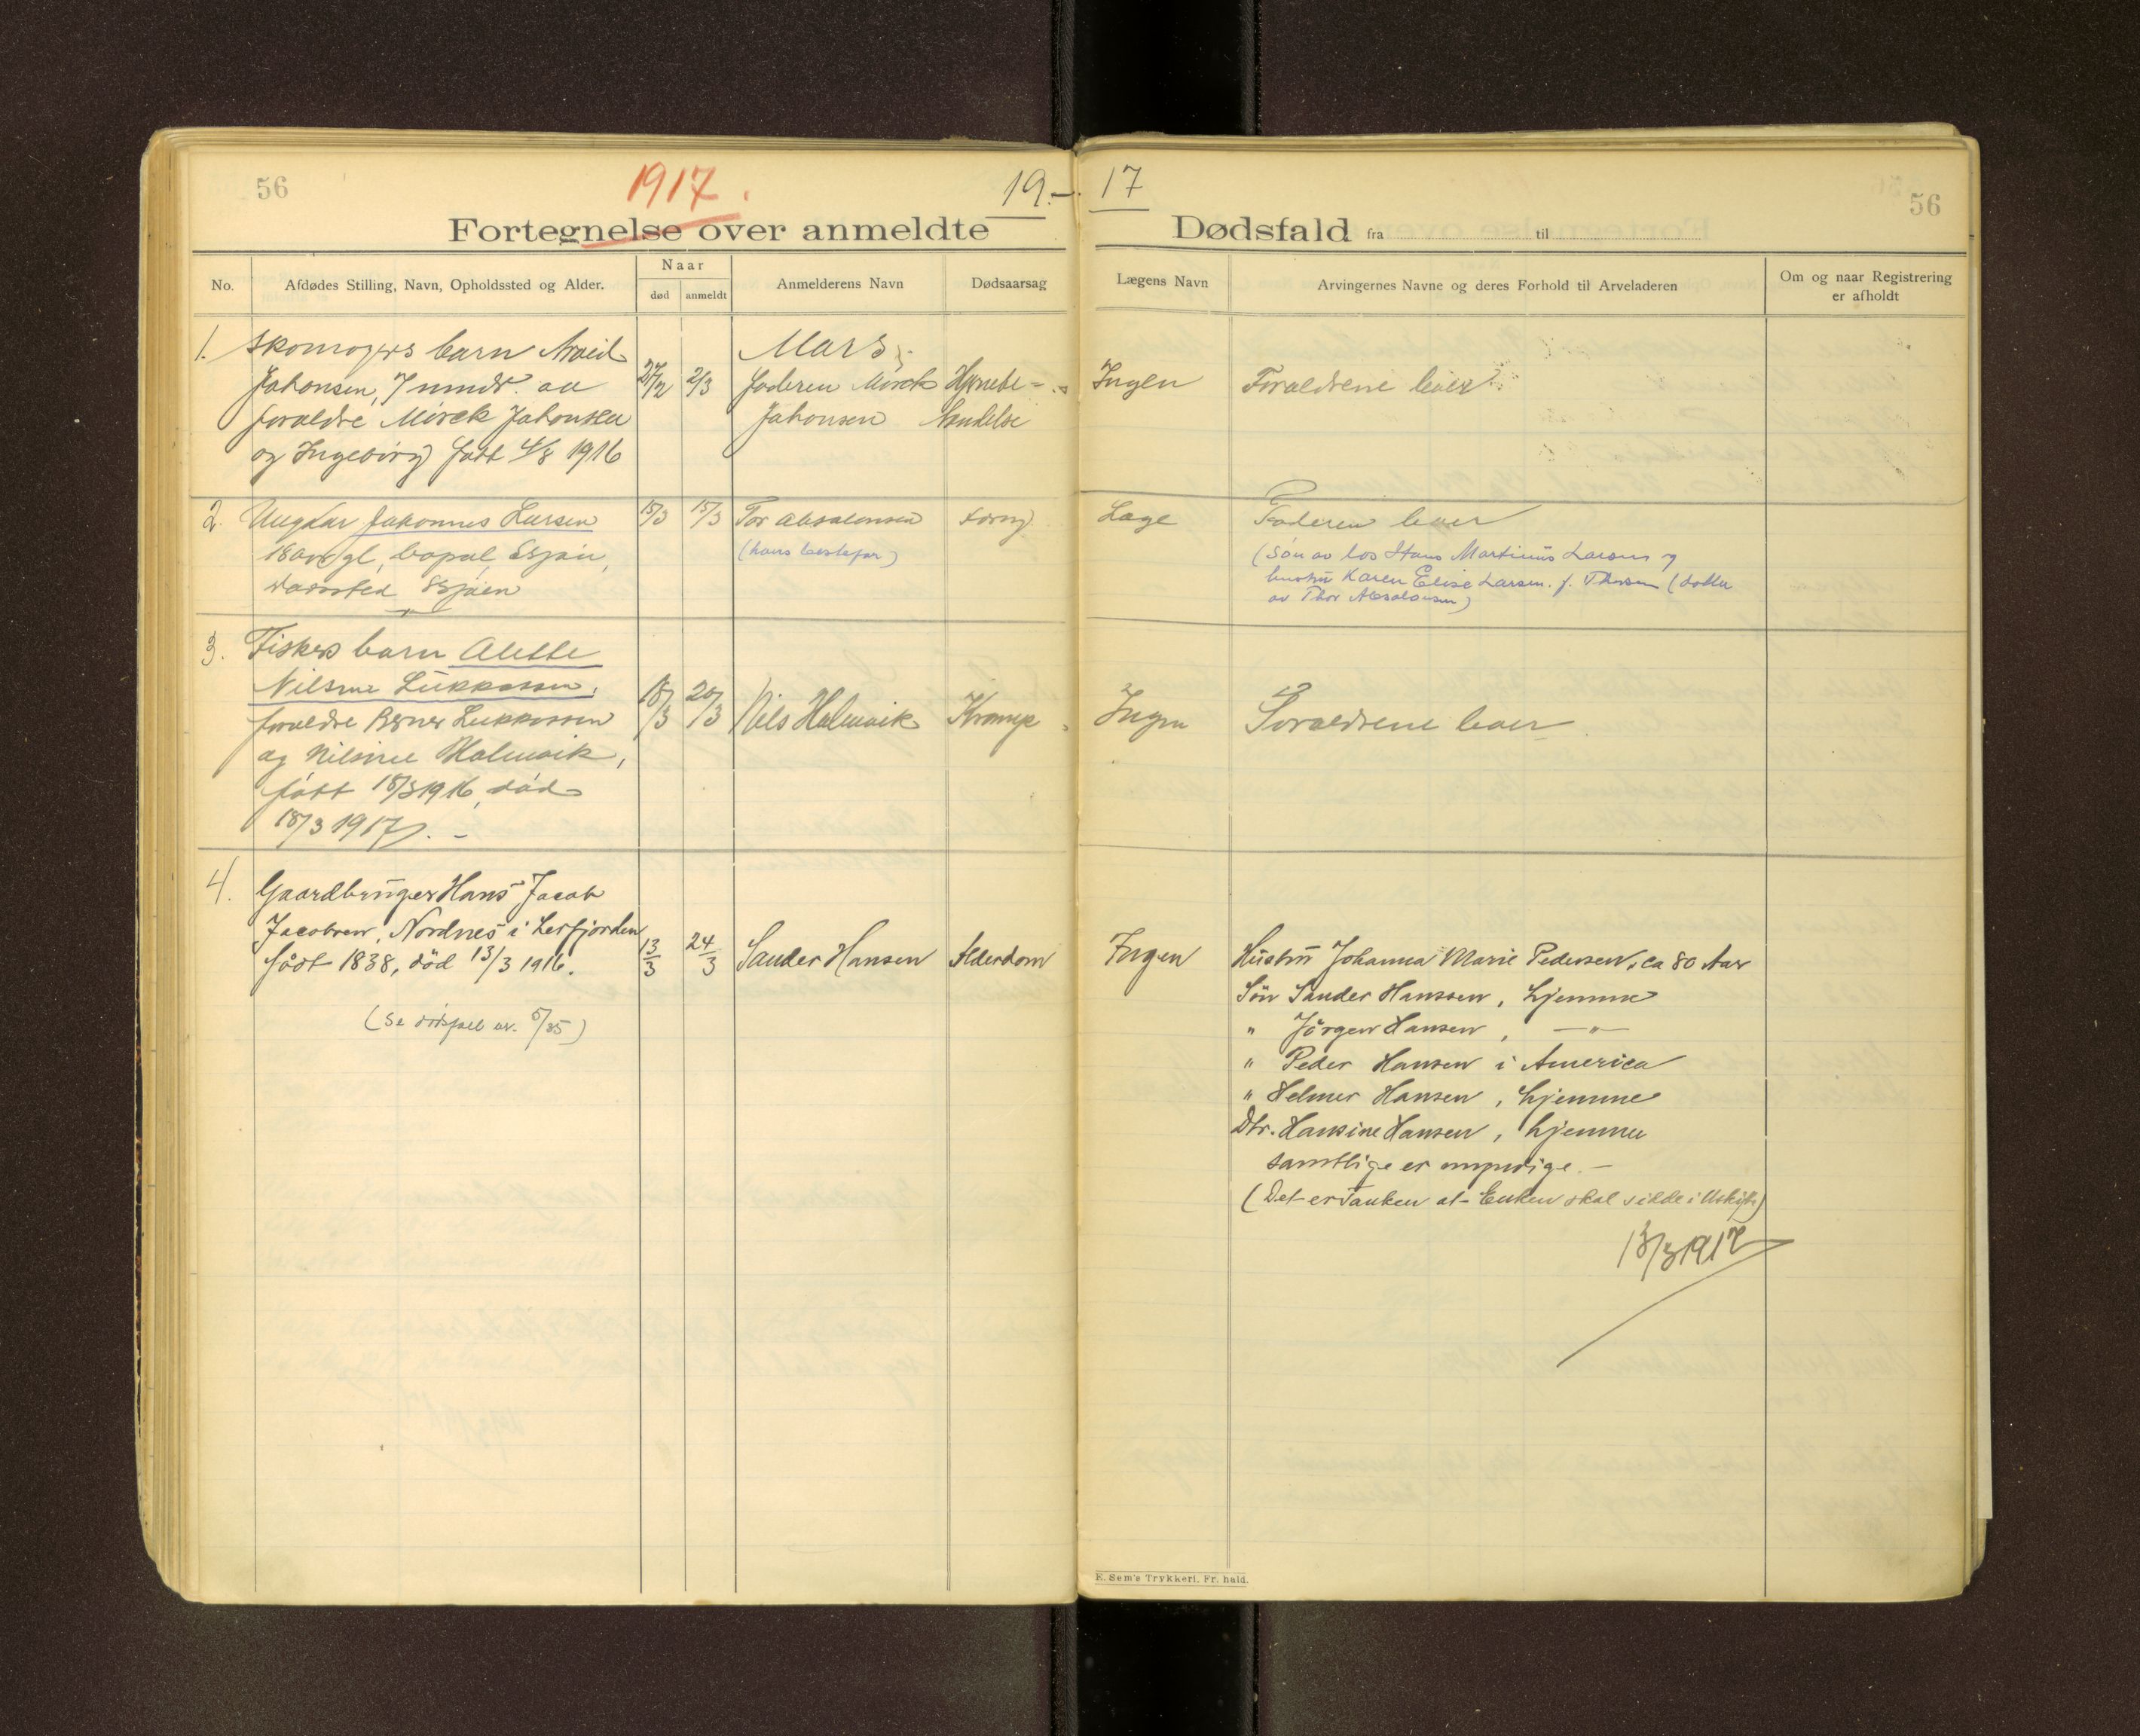 56
1917.
19.-
Fortegnelse over anmeldte
No.
Afdødes Stilling, Navn, Opholdssted og Alder.
Naar
død
anmeldt
Anmelderens Navn
Dødsaarsag
1. Skomagers barn Arvid
Johansen, 7 mndr. av
foraldre Mörck Johansen
og Ingeborg født 4/8 1916
27/2
2/3
Mars
faderen Mörck
Johansen
Hjrnebe=
tendelse
2. Ungkar Johannes Larsen
18 aar gl, bopæl
dødssted
15/3
15/3
Tor Absalonsen
(hans bestefar)
3. Fiskers barn Alette
Nilsine Lukkassen,
foraldre Berner Lukkassen
og Nilsine Halmvik,
født 18/3 1916, død
18/3 1917. -
18/3
20/3
Nils Halmvik
Krampe
4. Gaardbruger Hans Jacob
Jacobsen, Nordnes i Lerfjorden
født 1838, død 13/3 1916.
(Se dødsfal nr. 5/35)
13/3
24/3
Sander Hansen
Alderdom
17
56
Dødsfald fra til
Lægens Navn
Arvingernes Navne og deres Forhold til Arveladeren
Om og naar Registrering
er afholdt
Ingen
Foraldrene lever
Læge
Faderen lever
(Søn av los Hans Martinus Larsen og
hustru Karen Elise Larsen f. Thorsen (datter
av Thor Absalonsen)
Ingen
Foraldrene lever
Ingen
Hustru Johanna Marie Pedersen, ca 80 Aar
Søn Sander Hanssen, hjemme
" Jörgen Hansen, —"—
" Peder Hansen i America
" Helmer Hansen, hjemme
Dtr. Hansine Hansen, hjemme
samtlige er myndige. -
(Det er Tanken at Enken skal sidde i Uskifte)
13/3 1917
E. Sem's Trykkeri, Fr. hald.